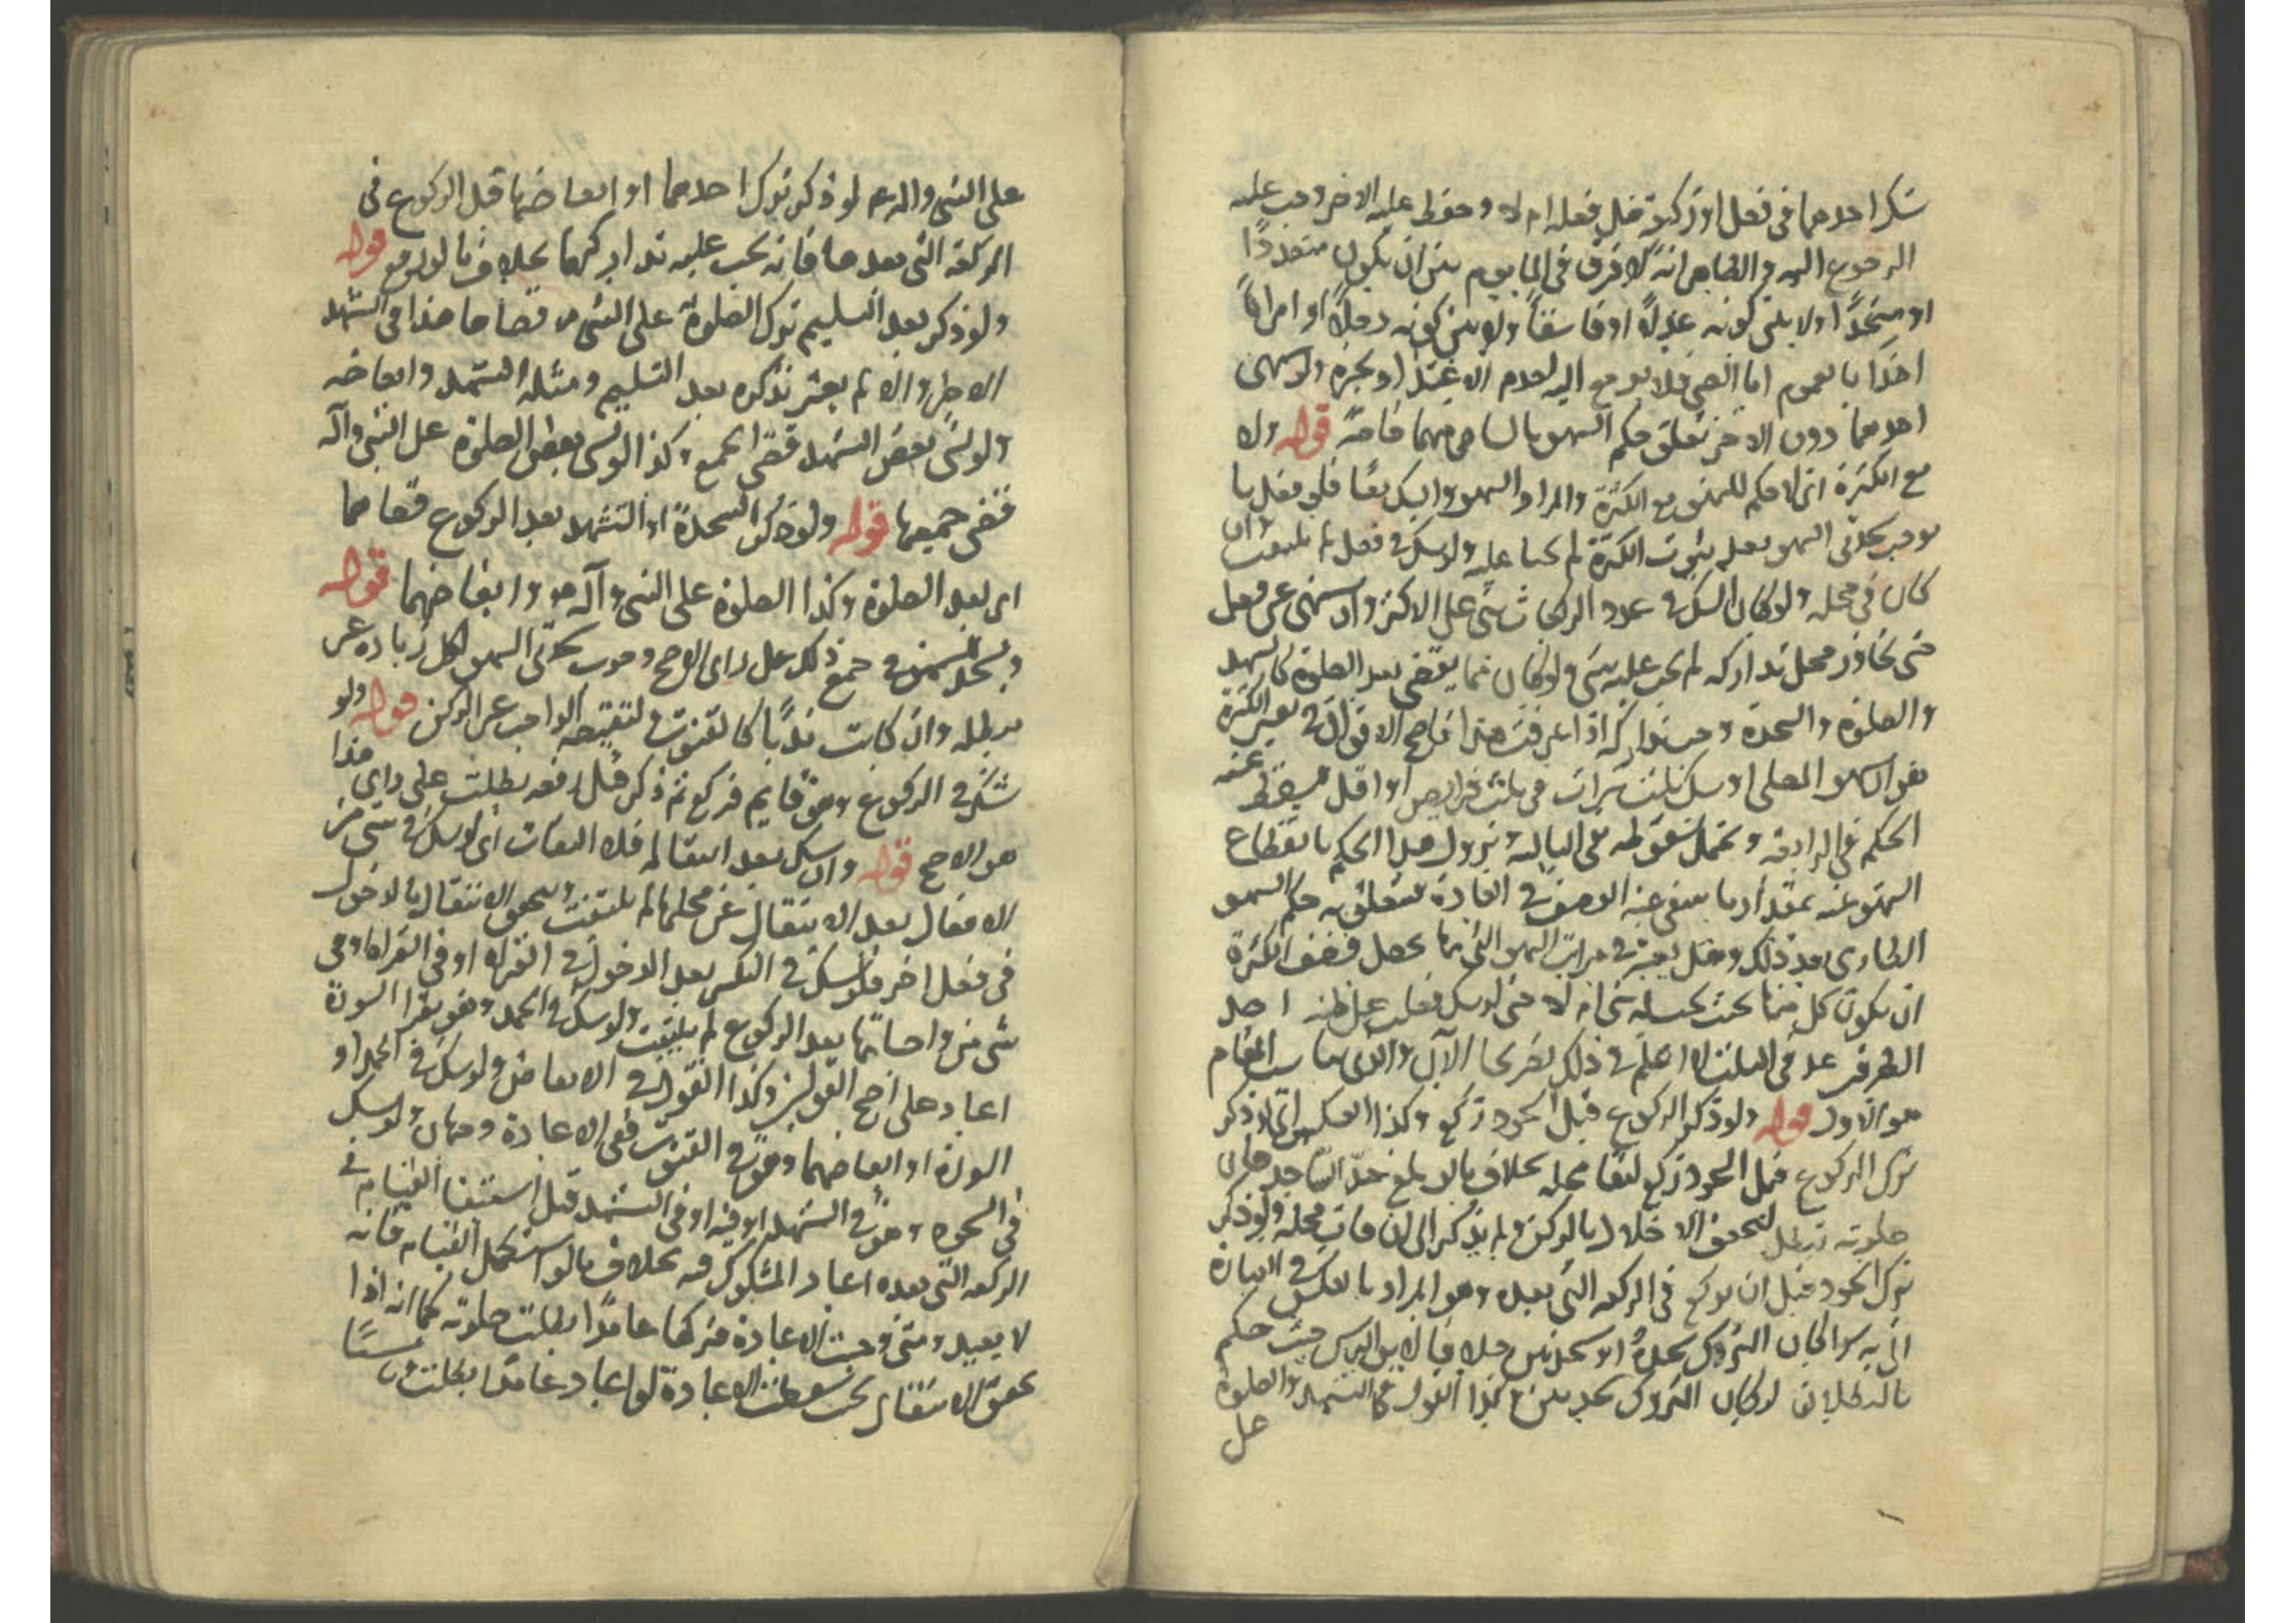 شك احدهما في فعل او ركعة هل فعله ام لا وحفظ عليه الاخر وجب عليه
الرجوع اليه والظاهر انه لا فرق في الماموم بين ان يكون متعددًا
او متحدًا ولا بين كونه عدلًا او فاسقًا ولا بين كونه رجلًا او امراةً
اخذًا بالعموم اما الصبي فلا يرجع اليه لعدم الاعتداد بخبره ولو سهى
احدهما دون الاخر تعلق حكم السهو بالساهي منهما خاصةً قوله ولا
مع الكثرة اي لا حكم للسهو مع الكثرة والمراد السهو والشك معًا فلو فعل ما
يوجب سجدتي السهو بعد ثبوت الكثرة لم تجبا عليه ولو شك في فعل لم يلتفت وان
كان في محله ولو كان الشك في عدد الركعات بنى على الاكثر وان سهى عن فعل
حتى تجاوز محل تداركه لم يجب عليه شي ولو كان مما يقضى بعد الصلوة كالتشهد
والصلوة والسجدة وجب تداركه اذا عرفت هذا فاصح الاقوال في تفسير الكثرة
هو ان يسهو المصلي او يشك ثلث مرات في ثلث فرايض او اقل فيسقط عنه
الحكم في الرابعة ويحتمل سقوطه في الثالثة ويزول هذا الحكم بانقطاع
السهو عنه بمقدار ما ينتفي عنه الوصف في العادة فيتعلق به حكم السهو
الطاري بعد ذلك وهل يعتبر في مرات السهو التي بها يحصل وصف الكثرة
ان يكون كل منها بحيث يجب له شي ام لا حتى لو شك فغلب على ظنه احد
الطرفين عد في الثلث لا اعلم في ذلك تصريحا الآن والذي يناسب المقام
هو الاول قوله ولو ذكر الركوع قبل السجود ركع وكذا العكس اي لو ذكر
ترك الركوع قبل السجود ركع لبقاء محله بخلاف ما لو بلغ حد الساجد فان
صلوته تبطل لتحقق الاخلال بالركن ولم يذكر الى ان فات محله ولو ذكر
ترك السجود قبل ان يركع في الركعة التي بعده وهو المراد بالعكس في العبارة
اتى به سواء كان المتروك سجدة او سجدتين خلافا لابن ادريس حيث حكم
بالبطلان لو كان المتروك سجدتين وكذا القول في التشهد والصلوة
على
على النبي واله م لو ذكر ترك احدهما او ابعاضها قبل الركوع في
الركعة التي بعدها فانه يجب عليه تداركهما بخلاف ما لو ركع قوله
ولو ذكر بعد التسليم ترك الصلوة على النبي ص قضاها هذا في التشهد
الاخير والا لم يعتبر ذكره بعد التسليم ومثله التشهد وابعاضه
ولو نسي بعض التشهد قضى الجميع وكذا لو نسي بعض الصلوة على النبي وآله
قضى جميعها قوله ولو ذكر السجدة او التشهد بعد الركوع قضاهما
اي بعد الصلوة وكذا الصلوة على النبي وآله ص وابعاضهما قوله
ويسجد للسهو في جميع ذلك على راي الاصح وجوب سجدتي السهو لكل زيادة غير
مبطله وان كانت ندبًا كالقنوت او لنقيصة الواجب غير الركن قوله ولو
شك في الركوع وهو قايم فركع ثم ذكر قبل رفعه بطلت على راي هذا
هو الاصح قوله وان شك بعد انتقاله فلا التفات اي لو شك في شي من
الافعال بعد الانتقال عن محلها لم يلتفت ويتحقق الانتقال بالدخول
في فعل اخر فلو شك في التكبير بعد الدخول في القراءة او في القراءة او في
شي من واجباتها بعد الركوع لم يلتفت ولو شك في الحمد وهو يقرا السورة
اعاد على اصح القولين وكذا القول في الابعاض ولو شك في الحمد او
السورة او ابعاضهما وهو في القنوت ففي الاعادة وجهان ولو شك
في السجود وهو في التشهد او فيه او في التشهد قبل استيفا القيام في
الركعة التي بعده اعاد المشكوك فيه بخلاف ما لو استكمل القيام فانه
لا يعيد ومتى وجبت الاعادة فتركها عامدًا بطلت صلوته كما انه اذا
تحقق الانتقال بحيث سقطت الاعادة لو اعاد عامدًا بطلت